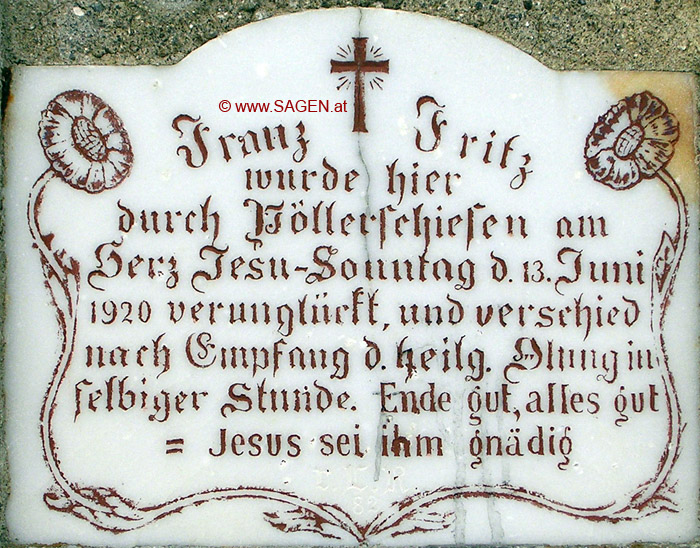 © www.SAGEN.at
Franz Fritz
wurde hier
durch Pöllerschiesen am
Herz Jesu-Sonntag d. 13. Juni
1920 verunglückt, und verschied
nach Empfang d. heilg. Ölung in
selbiger Stunde. Ende gut, alles gut
= Jesus sei ihm gnädig